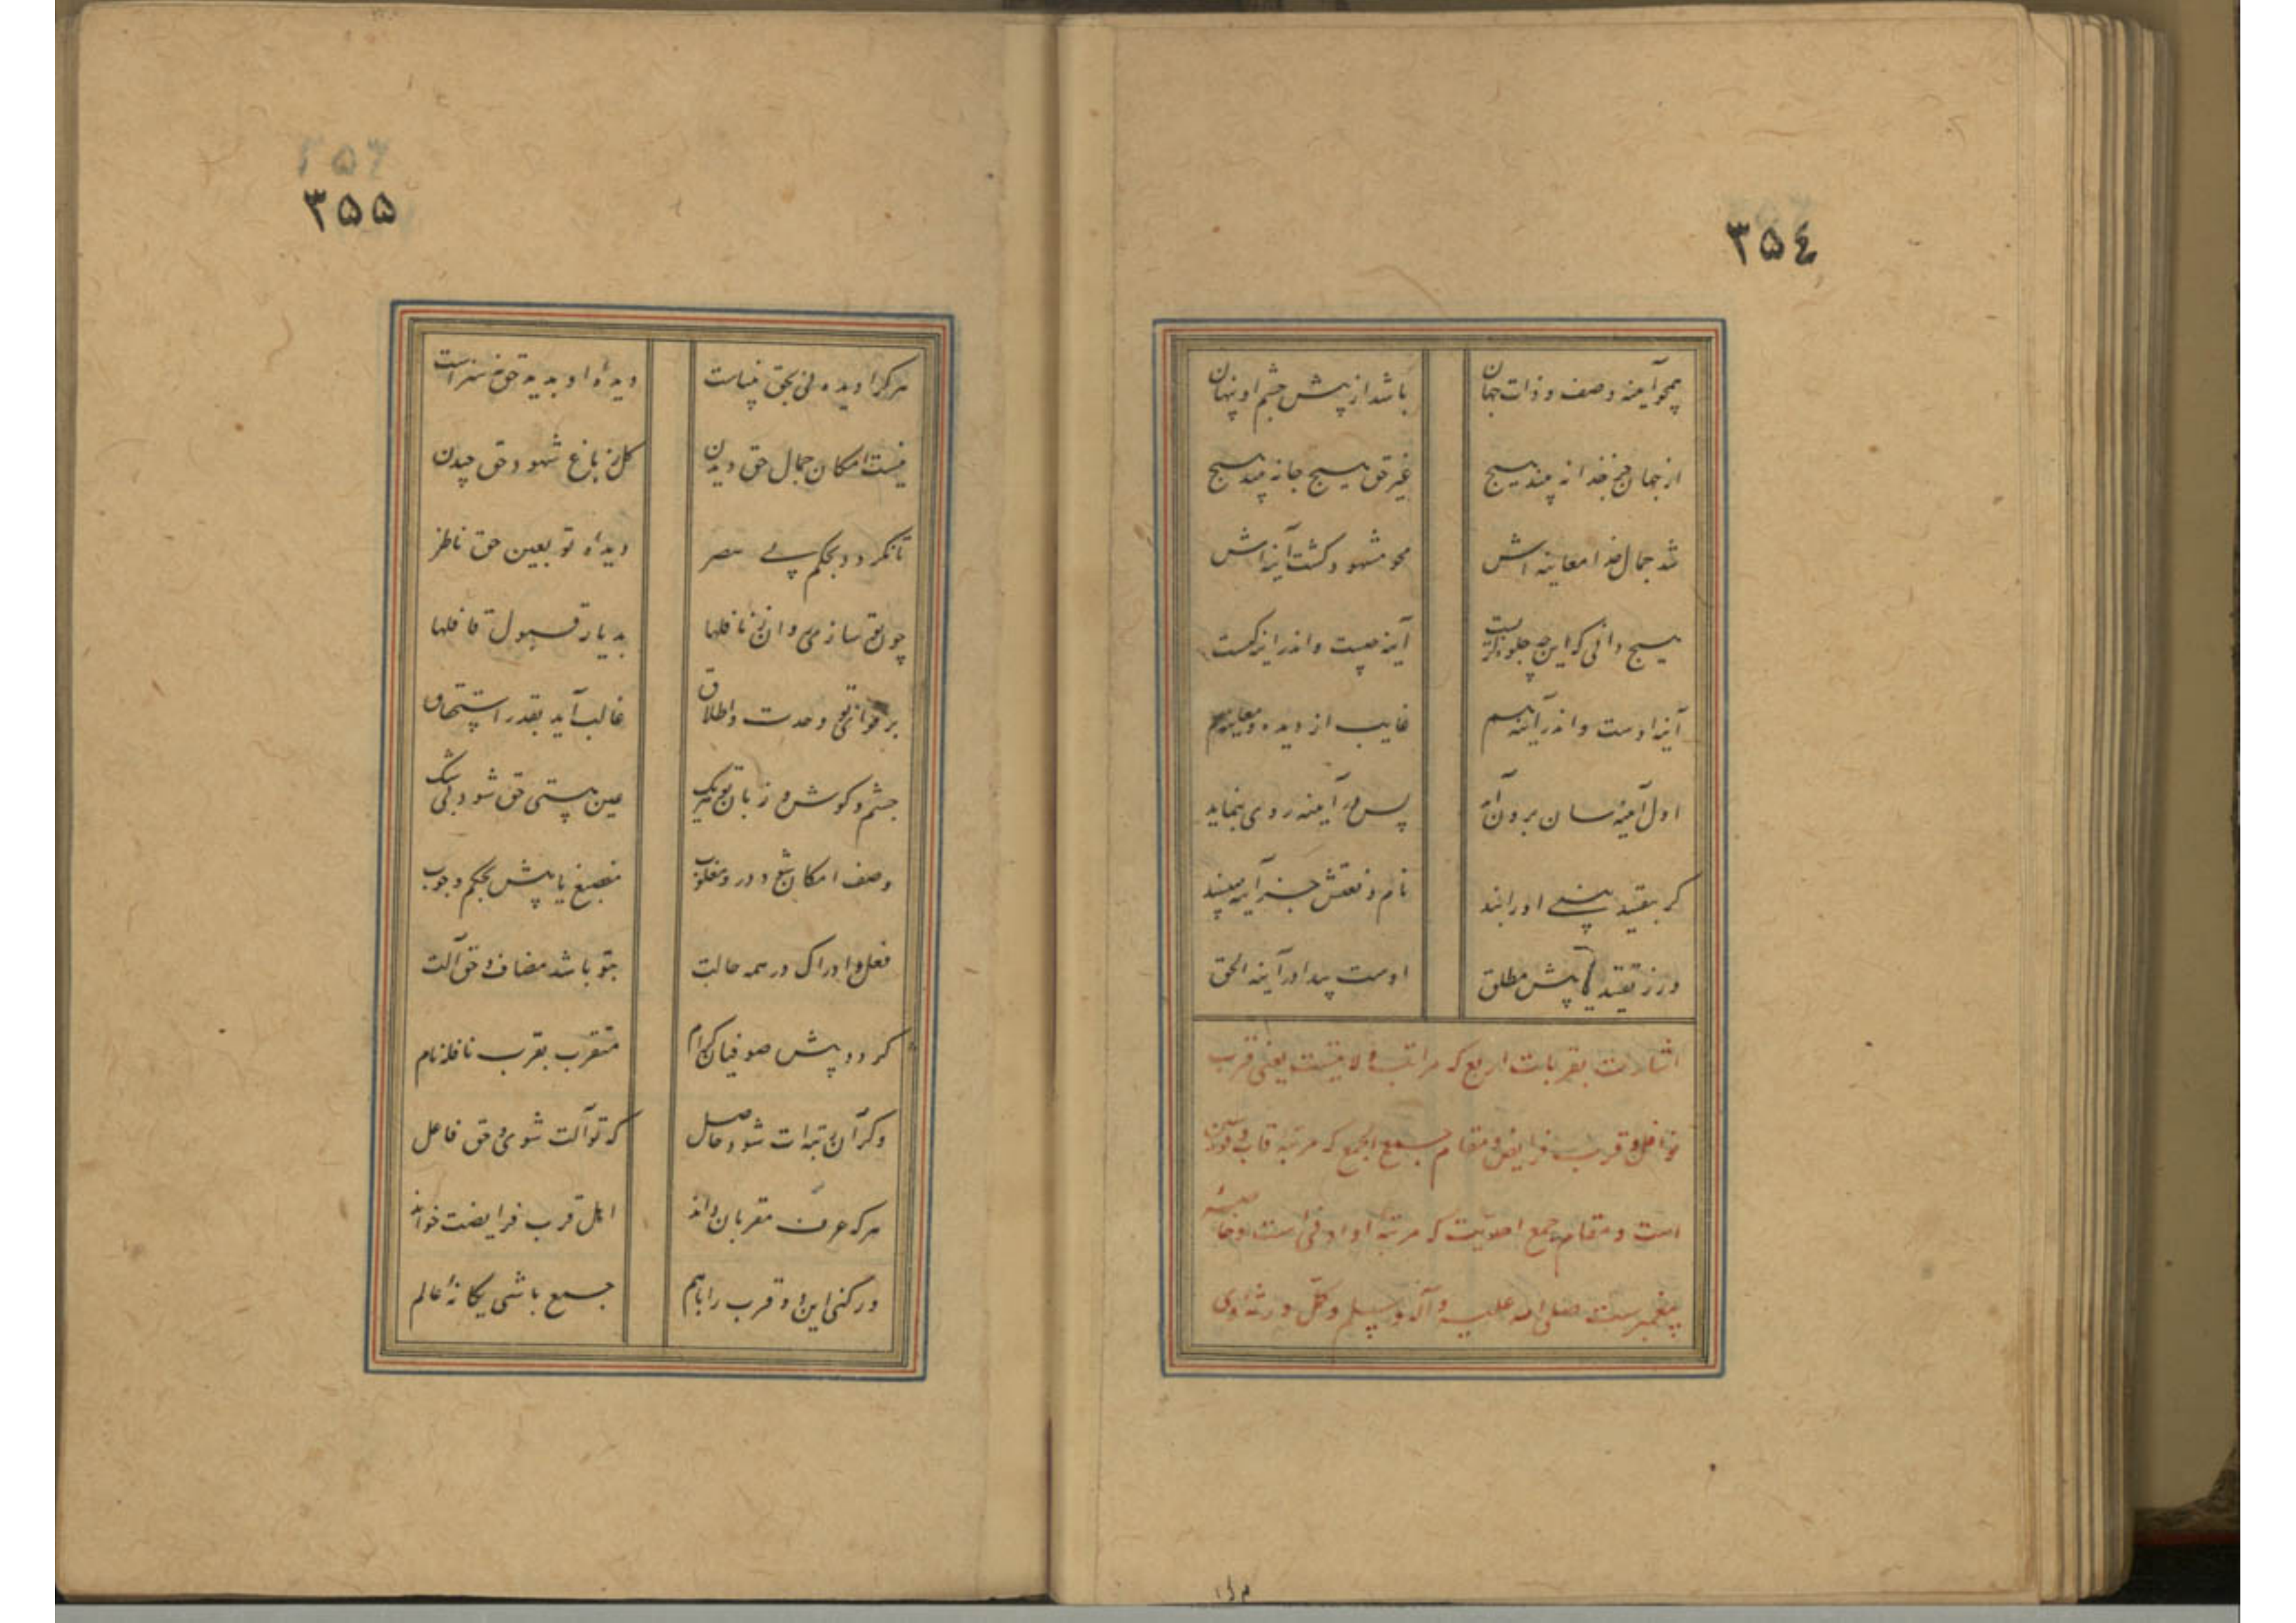 ۳۵۴
همچو آینه وصف و ذات جهان باشد از پیش چشم او پنهان
از جهان جز خدا نه بیند هیچ غیر حق هیچ جا نه بیند هیچ
شد جمال خدا معاینه اش محو مشهود کشت آینه اش
هیچ دانی که این چه جلوه کریست آینه چیست واندر اینه کیست
آینه اوست واندر آینه هم غایب از دیده و معاینه هم
اول آینه سان برون آید پس در آیینه روی بنماید
کر بقید بینی او را بند نام و نقش جز آینه مپسند
ور ز تقیید یابیش مطلق اوست پیدا در آینه الحق
اشارت بقربات اربع که مراتب ولایتست یعنی قرب
نوافل و قرب فرایض و مقام جمع الجمع که مرتبه قاب قوسین
است و مقام جمع احدیت که مرتبهٔ او ادنی است و خاصهٔ
پیغمبرست صلی الله علیه و آله وسلم و کمّل ورثهٔ وی
۳۵۵
هر کرا دیده نی بحق بیناست دیدهٔ او بدید حق نه سزاست
نیست امکان جمال حق دیدن کل ز باغ شهود حق چیدن
تا نکردد بحکم بی یبصر دیدهٔ تو بعین حق ناظر
چون تو سازی روان ز نافلها بدیار قبول قافلها
بر قوای تو وحدت و اطلاق غالب آید بقدر استحقاق
چشم و کوش و زبان تو هر یک عین هستی حق شود بی شک
وصف امکان شود در و مغلوب منصبغ یابیش بحکم وجوب
فعل و ادراک در همه حالت بتو باشد مضاف و حق آلت
کردد پیش صوفیان کرام متقرب بقرب نافله نام
وکر آن رتبه ات شود حاصل که تو آلت شوی و حق فاعل
هر که عرف مقربان داند اهل قرب فرایضت خواند
ور کنی این دو قرب را با هم جمع باشی یکانهٔ عالم